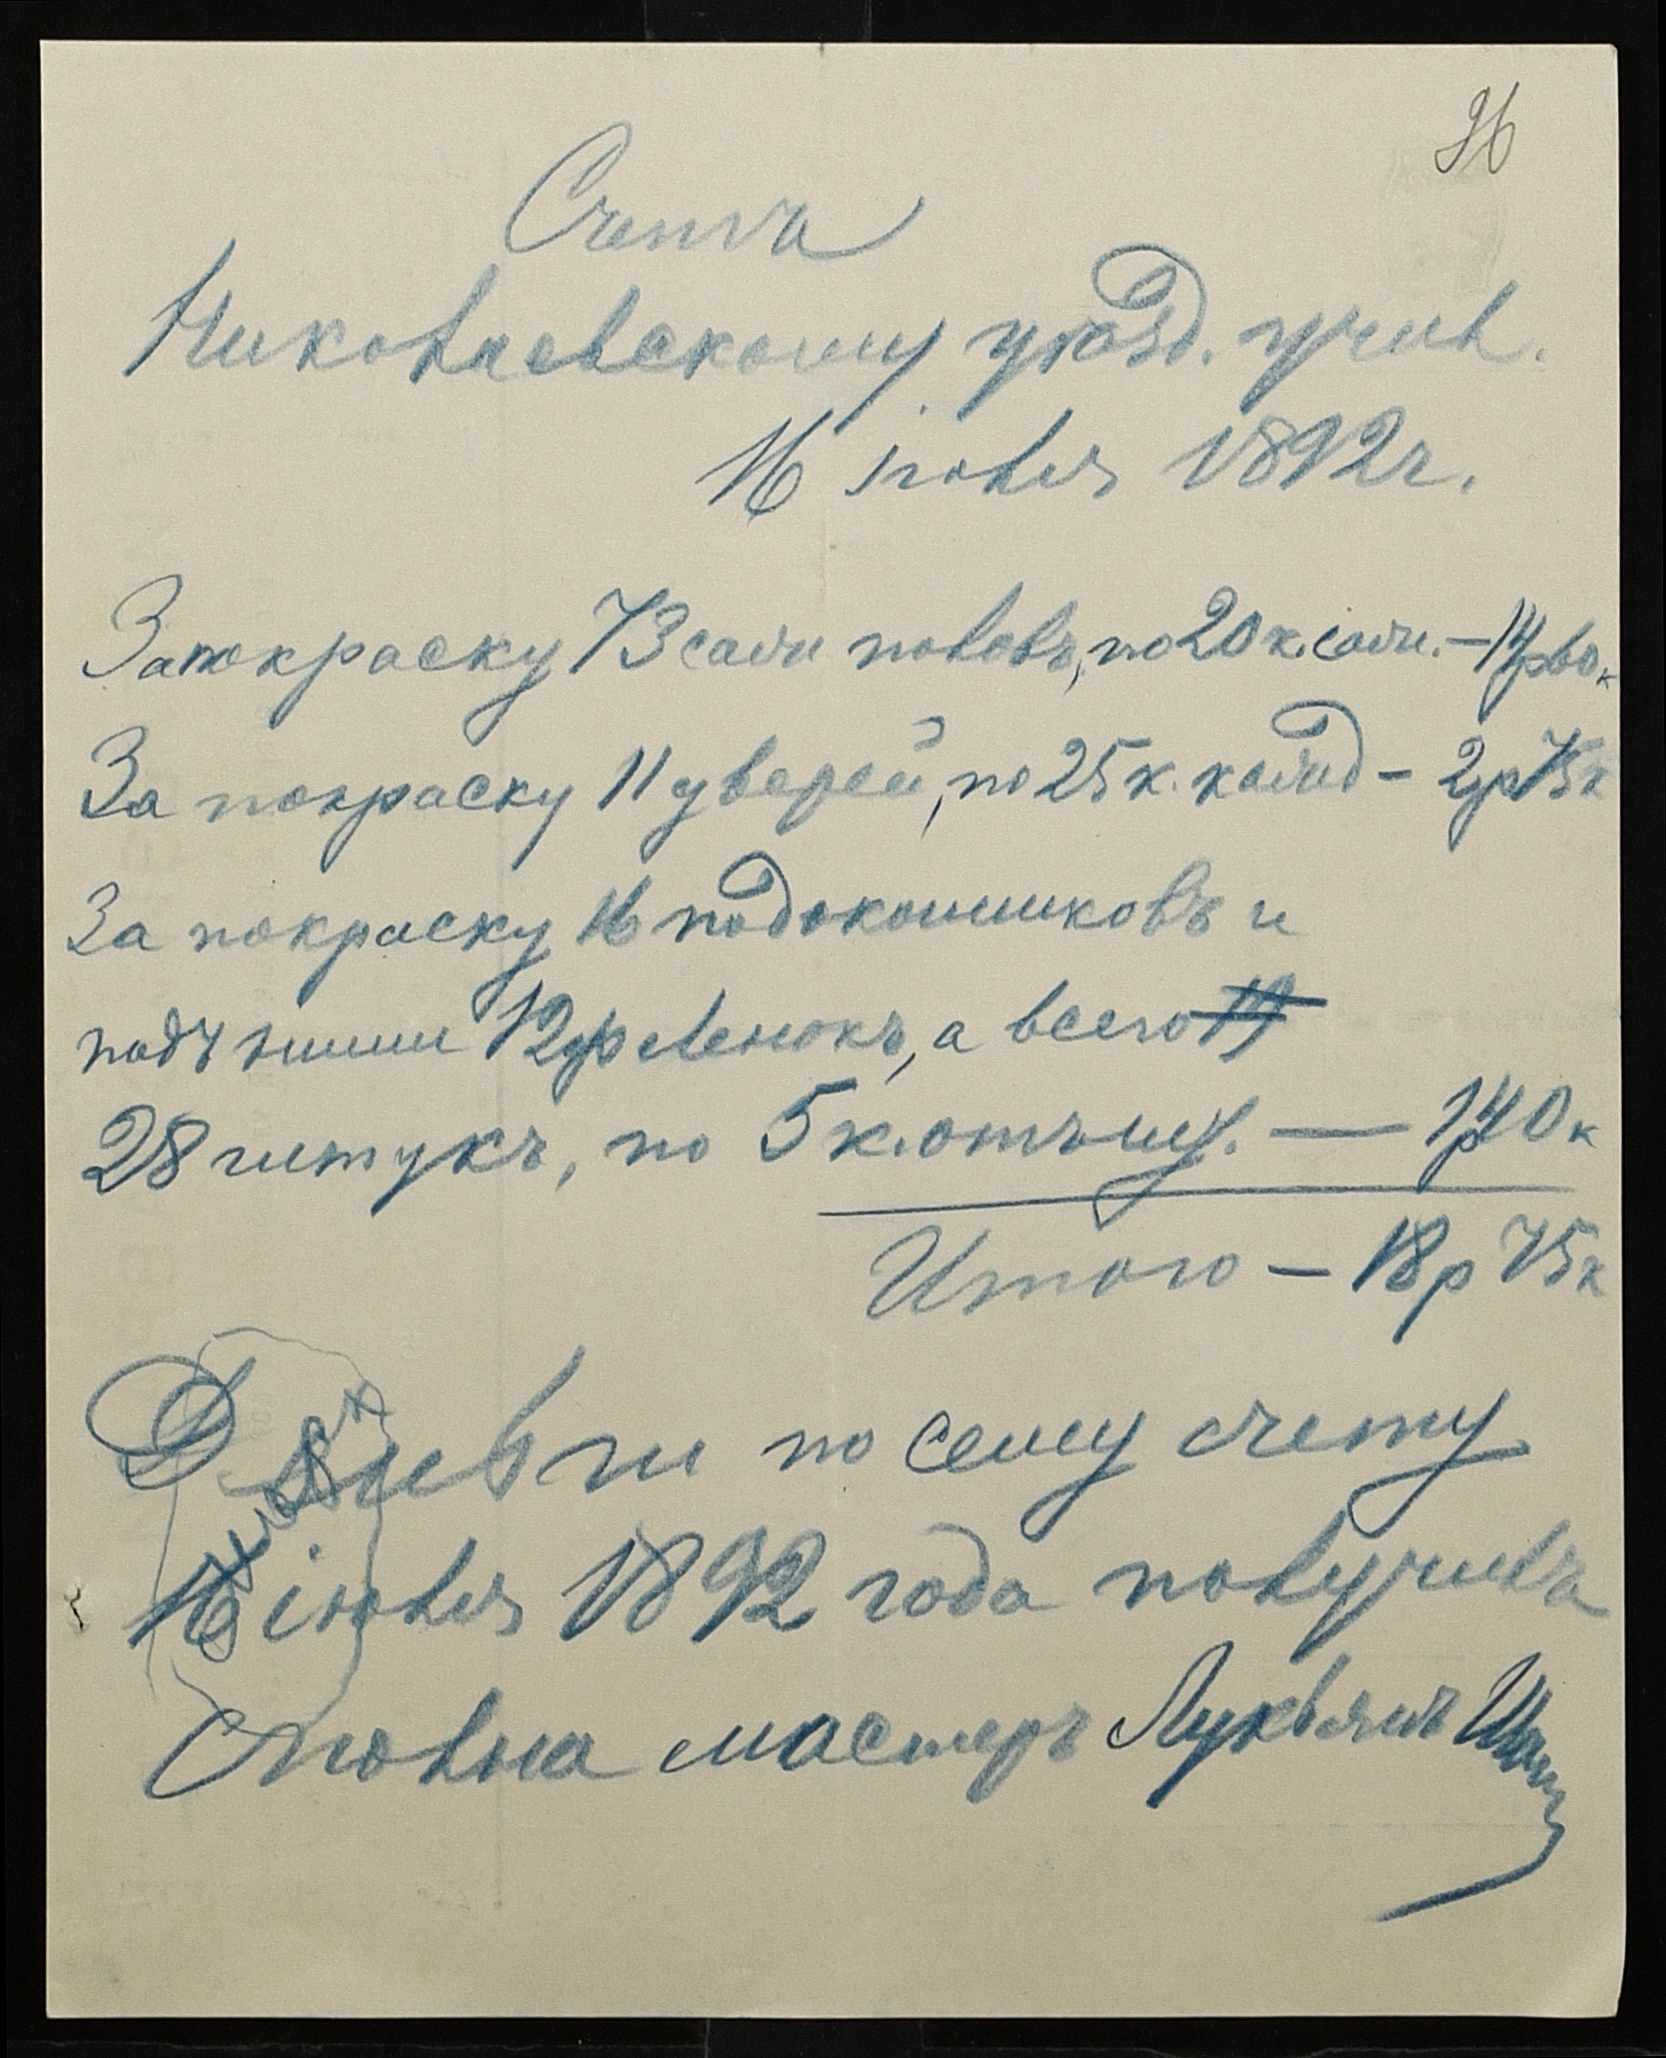 96
Счетъ
Николаевскому уѣзд. учил.
16 іюля 1892 г.
За покраску 73 саж половъ, по 20 к. саж. — 14 р 60 к
За покраску 11 дверей, по 25 к. кажд — 2 р 75 к
За покраску 16 подоконниковъ и
подъ ними 12 фленокъ, а всего
28 штукъ, по 5 к. отъ шт. — 1 р 40 к
Итого — 18 р 75 к
Деньги по сему счету
16 іюля 1892 года получилъ
сполна мастеръ Лукьянъ